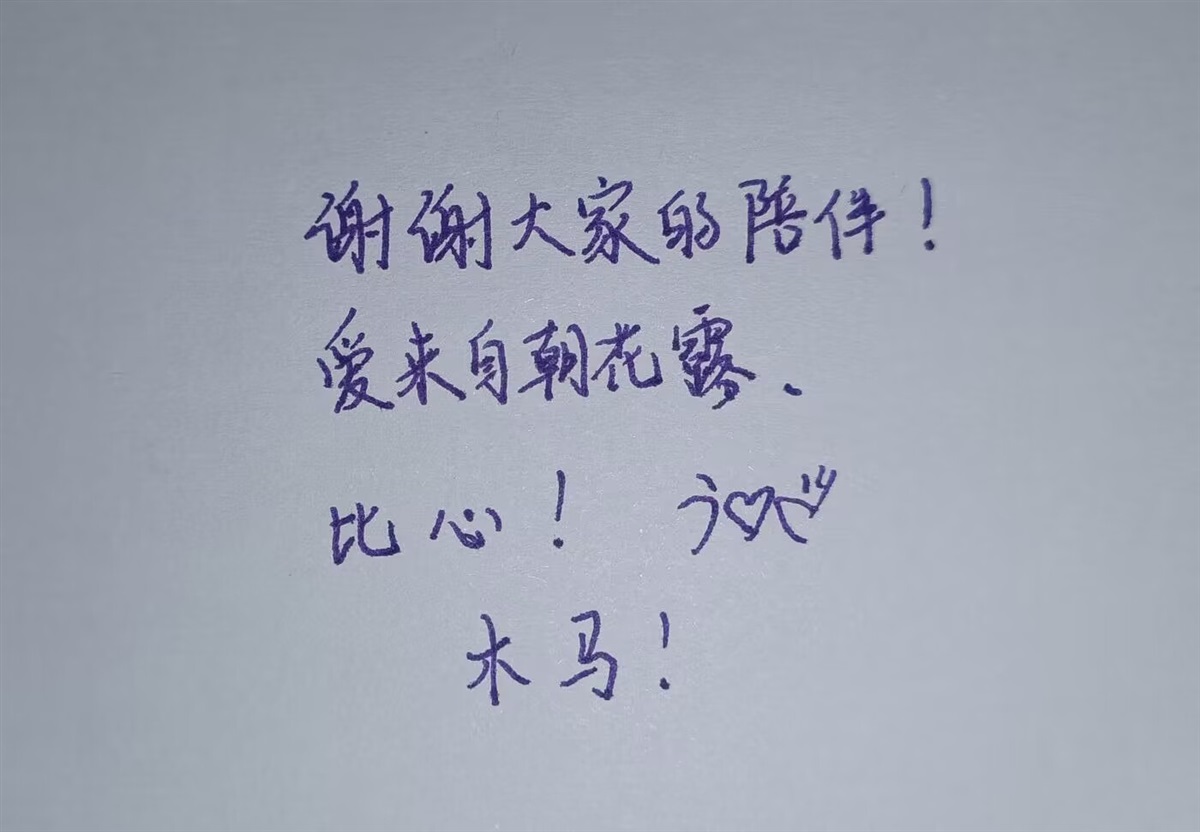 谢谢大家的陪伴！
爱来自朝花露、
比心！
木马！